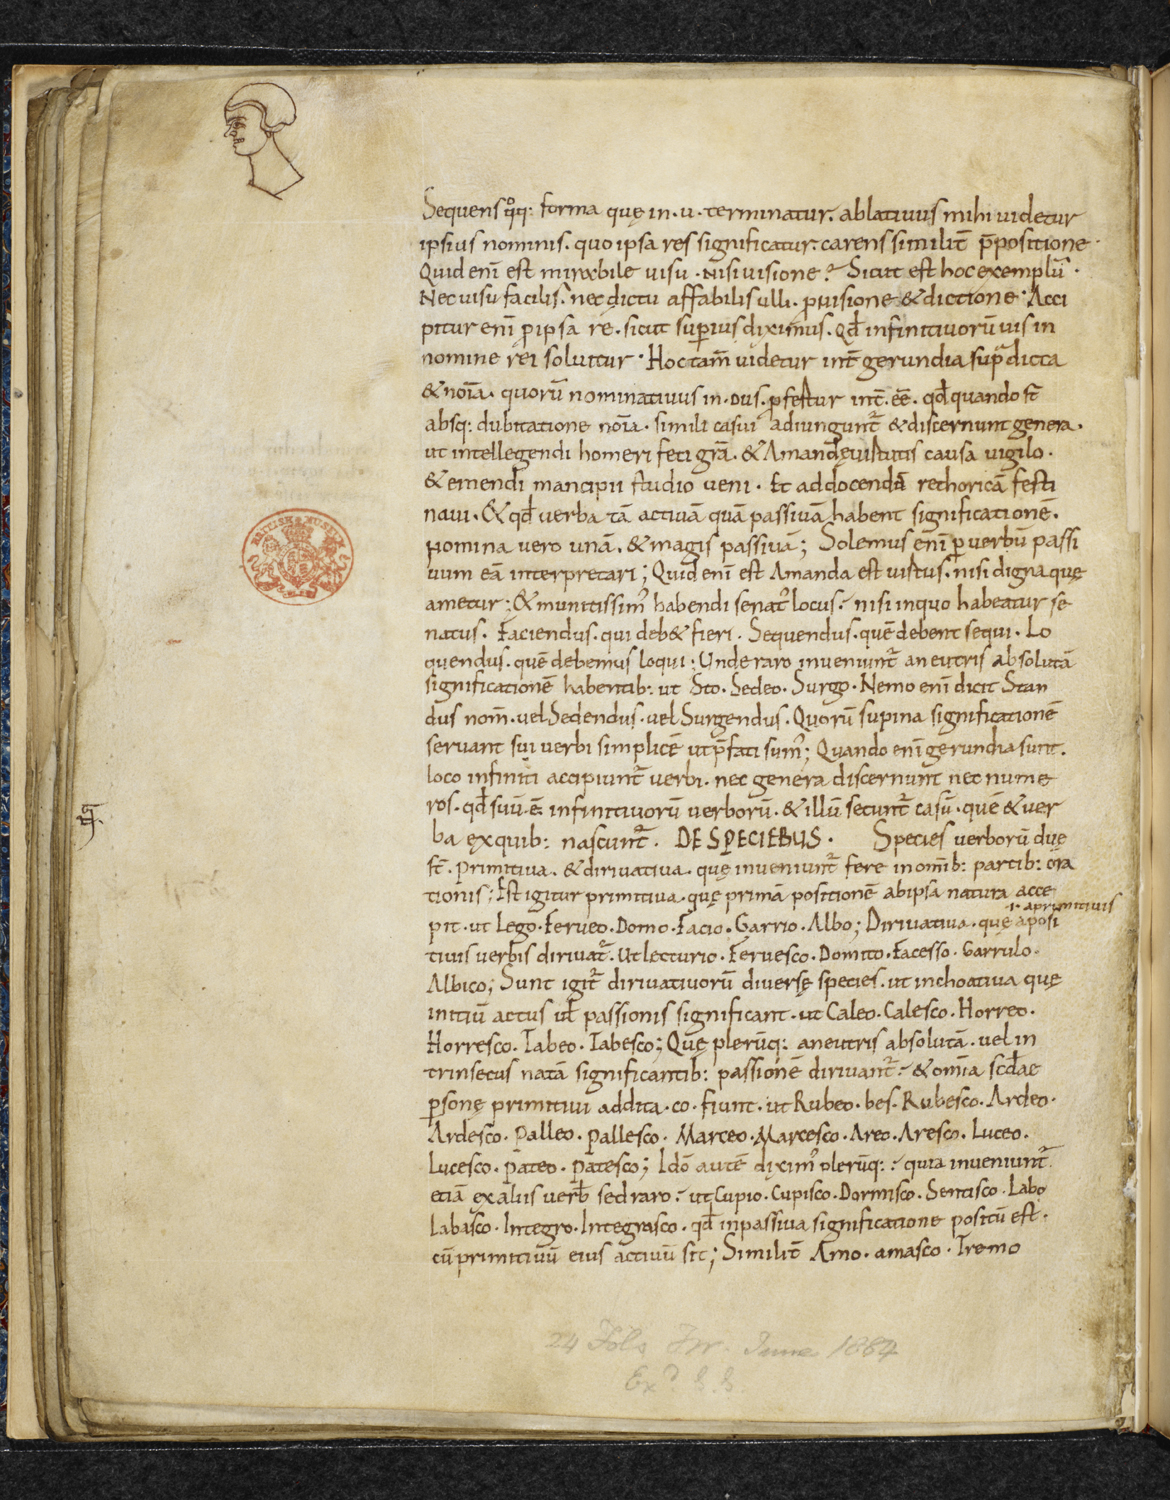 Sequens qͦq: forma quę in .u. terminatur. ablatiuus mihi uidetur
ipsius nominis. quo ipsa res significatur. carens similit̄ p̄positione.
Quid eni᷒ est mirabile uisu. Nisi uisione? Sicut est hoc exemplū.
Nec uisu facilis. nec dictu affabilis ulli. ꝓ uisione & dictione. Acci
pitur eni᷒ ꝓ ipsa re. sicut supius diximus. qđ infinitiuorū uis in
nomine rei soluitur. Hoc tam̄ uidetur int̄ gerundia supᵃdicta
& noīa. quorū nominatiuus in .dus. ꝓfertur int̄.ēē. qđ quando st̄
absq: dubitatione noīa. simili casui adiungunt̄ & discernunt genera.
ut intellegendi homeri feci grā. & Amandę uirtutis causa uigilo.
& emendi mancipii studio ueni. Et ad docendā rethoricā festi
naui. & qđ uerba tā actiuā quā passiuā habent significationē.
Nomina uero unā. & magis passiuā; Solemus enī ꝑ uerbū passi
uum eā interpretari; Quid enī est Amanda est uirtus. nisi digna quę
ametur; & munitissim᷒ habendi senat᷒ locus. nisi in quo habeatur se
natus. Faciendus. qui deb& fieri. Sequendus. quē debent sequi. Lo
quendus. quē debemus loqui; Unde raro inueniunt̄ a neutris absolutā
significationē habentib: ut Sto. Sedeo. Surgo. Nemo enī dicit Stan
dus nom̄. uel Sedendus. uel Surgendus. Quorū supina significationē
seruant sui uerbi simplicē ut p̄fati sum᷒; Quando enī gerundia sunt.
loco infiniti accipiunt̄ uerbi. nec genera discernunt nec nume
ros. qđ suū.ē. infinitiuorū uerborū. & illū secunt̄ casū. quē & uer
ba ex quib: nascunt̄. DE SPECIEBUS. Species uerborū duę
st̄. Primitiua. & diriuatiua. quę inueniunt̄ fere in om̄ib: partib: ora
tionis; Est igitur primitiua. quę primā positionē ab ipsa natura acce
.i. a primitiuis
pit. ut Lego. Ferueo. Domo. Facio. Garrio. Albo; Diriuatiua. quę a posi
tiuis uerbis diriuat̄. Ut lecturio. Feruesco. Domito. Facesso. Garrulo.
Albico; Sunt igit̄ diriuatiuorū diuersę species. ut inchoatiua quę
initiū actus uł passionis significant. ut Caleo. Calesco. Horreo.
Horresco. Tabeo. Tabesco; Quę plerūq: a neutris absolutā. uel in
trinsecus natā significantib: passionē diriuant̄. & om̄ia scđae
ꝑsonę primitiui addita .co. fiunt. ut Rubeo. bes. Rubesco. Ardeo.
Ardesco. Palleo. Pallesco. Marceo. Marcesco. Areo. Aresco. Luceo.
Lucesco. Pateo. Patesco; Idō autē dixim᷒ plerūq:. quia inueniunt̄
etiā ex aliis uerb̄ sed raro. ut Cupio. Cupisco. Dormisco. Sentisco. Labo
Labasco. Integro. Integrasco. qđ in passiua significatione positū est.
cū primitiuū eius actiuū sit; Similit̄ Amo. amasco. Tremo
BRITISH MUSEUM
24 Fols FW. June 1884
Exᵈ.